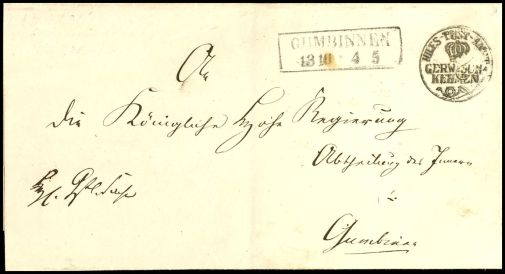 GUMBINNEN
13 10 4 5
HILFS-POST-AMT
GERWISCH-
KEHMEN
An
die Königliche Hohe Regierung
Abtheilung des Innern
Gumbinnen